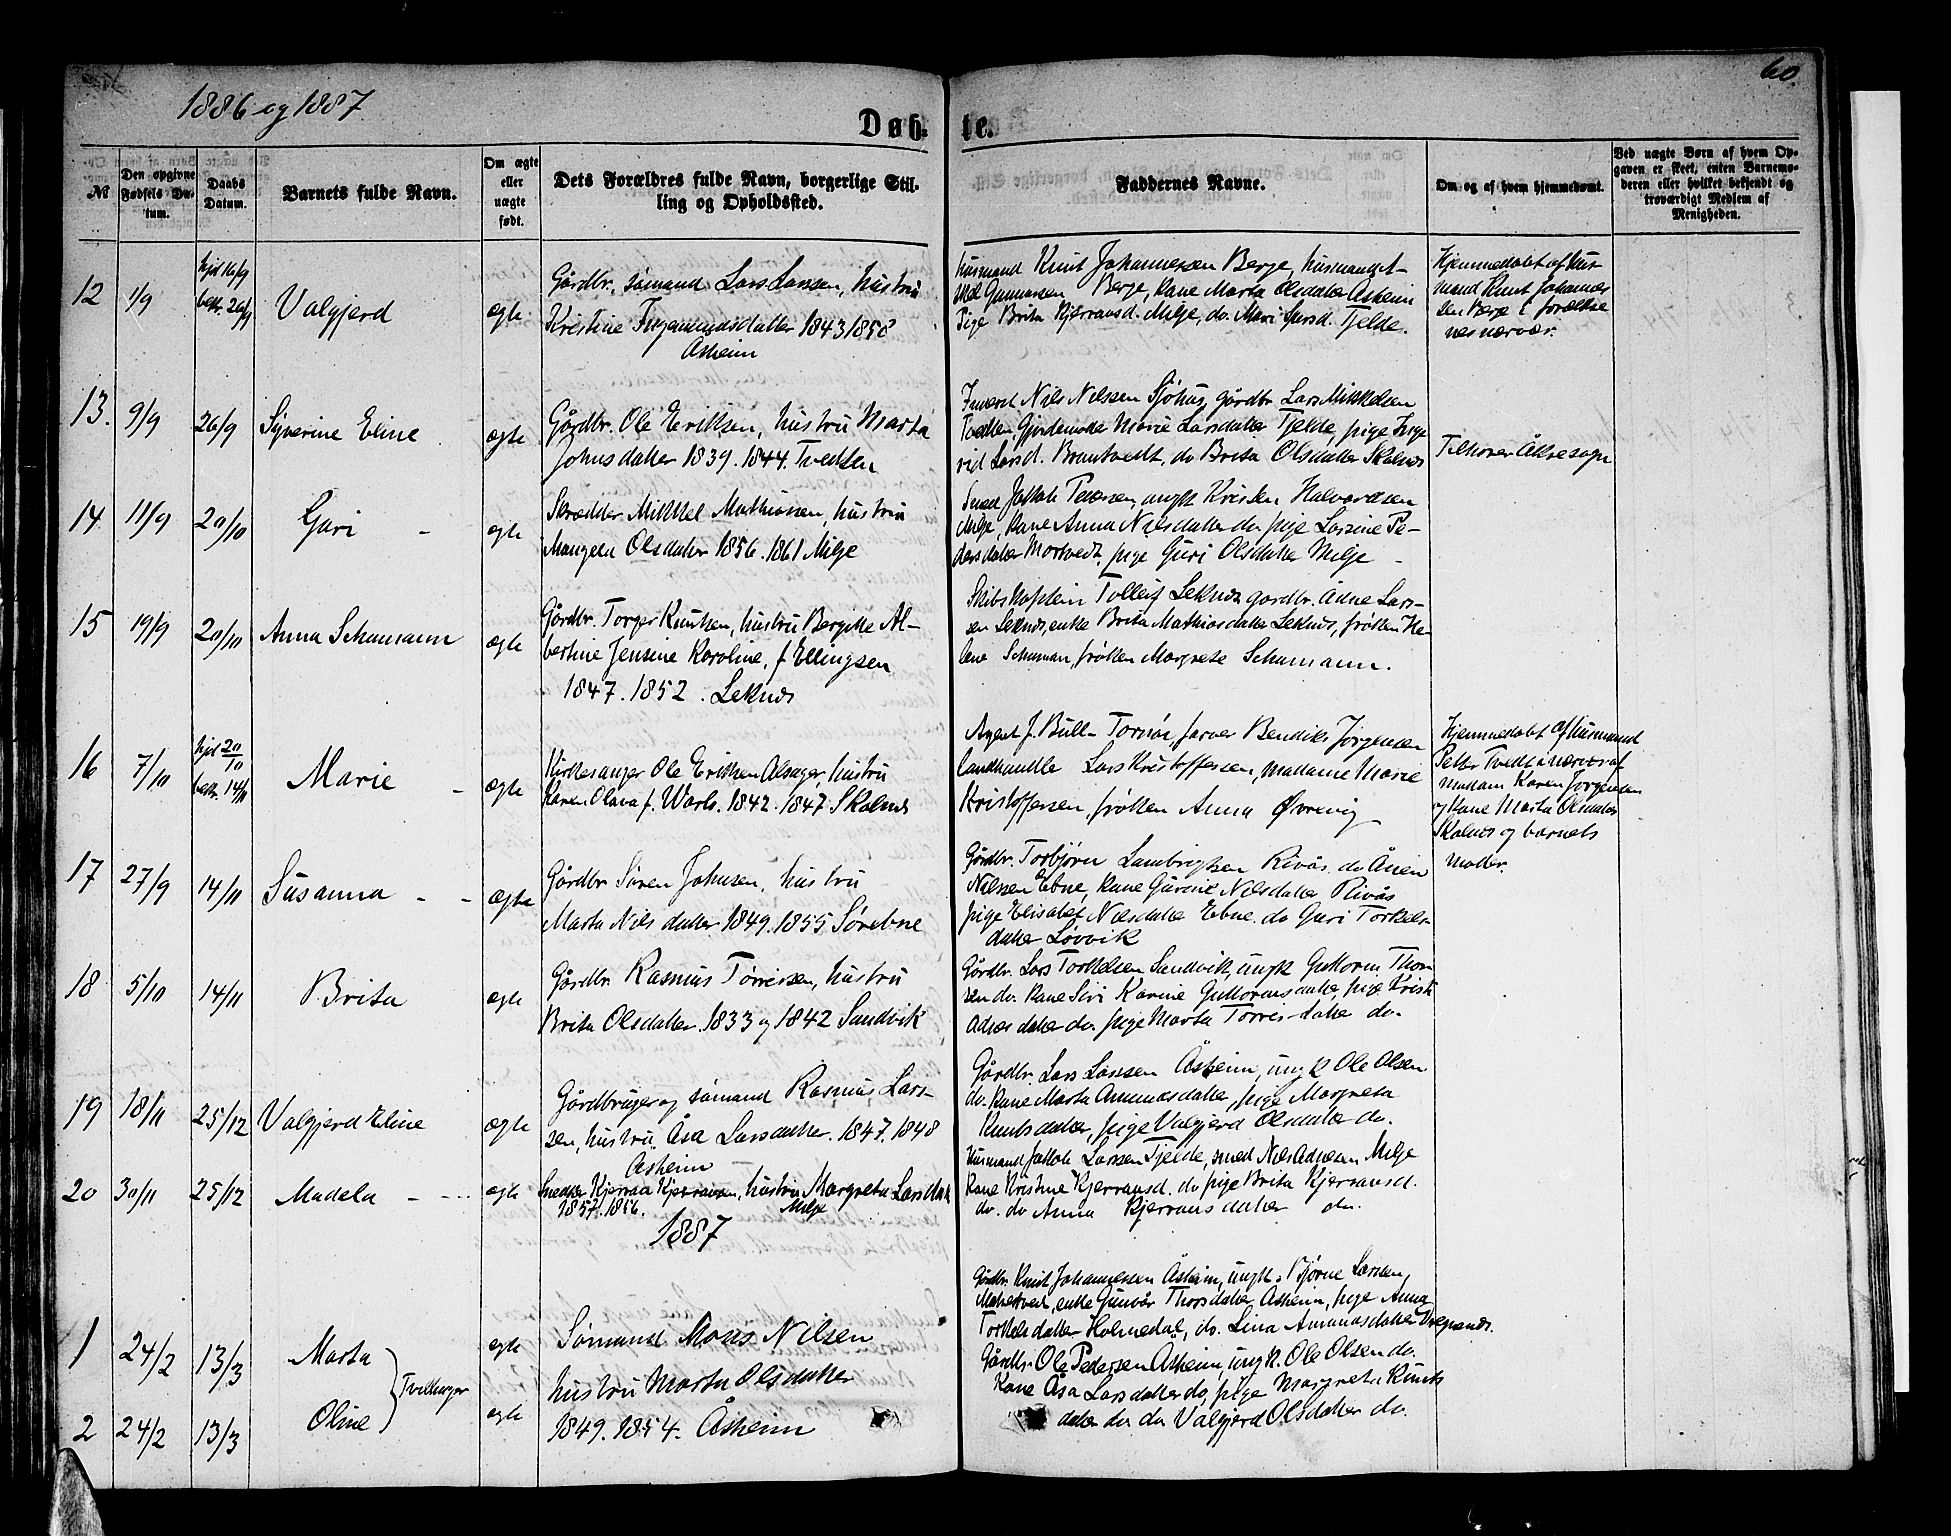 60.
1886 og 1887
Døbte.
№
Den opgivne Fødsels Datum.
Daabs Datum.
Barnets fulde Navn.
Om ægte eller uægte født.
Dets Forældres fulde Navn, borgerlige Stilling og Opholdssted.
Faddernes Navne.
Om og af hvem hjemmedøbt.
Ved uægte Børn af hvem Opgaven er skeet, enten Barnemoderen eller hvilket bekjendt og troværdigt Medlem af Menigheden.
12
1/9
hjd 16/9
bekr. 26/9
Valgjerd
ægte
Gårdbr. sømand Lars Larssen, hustru
Kristine Ingemundsdatter 1843 1858
Åsheim
husmand Knut Johannesen Berge, husmand
Gunnarsen Berge, kone Marta Olsdatter Åsheim
Pige Brita Kjerransd. Milje, do. Mari Larsd. Tjelde.
Hjemmedøbt af hus-
mand Knut Johannes
sen Berge i foreldre
nes nærvær.
13.
9/9
26/9
Syverine Eline
ægte
Gårdbr. Ole Eriksen, hustru Marta
Johnsdatter 1839. 1844. Tvedten
Nils Nilssen Sjöhus, gårdbr Lars Mikkelsen
Tvedten Gjordemoder Marie Larsdatter Tjelde, pige Inge
rid Larsd. Brantvedt, do Brita Olsdatter Skålnes
Tilhører Åkre sogn
14
11/9
20/10
Guri -
ægte
Skrædder Mikkel Mathiassen, hustru
Mangela Olsdatter 1856. 1861 Milje
Smed Jakob Pedersen, ungk Kristen Halvorsen
Milje, kone Anna Nilsdatter do. pige Larsine Pe-
dersdatter Mortvedt, pige Guri Olsdatter Milje -
15
19/9
20/10
Anna Schumann
ægte
Gårdbr. Torger Knutsen, hustru Bergitte Al-
bertine Jensine Karoline, f. Ellingsen
1847. 1852. Leknes
Skibskaptein Tolleif Leknes gårdbr. Ådne Lars-
sen Leknes, enke Brita Mathiasdatter Leknes, frøken He-
lene Schuman, frøken Margrete Schumann.
16
7/10
hjd 20/10
bekr. 14/11
Marie -
ægte
Kirkesanger Ole Eriksen Alsager, hustru
Karen Olava f. Warb. 1842. 1847 Skålnes
Agent J. Bull- farver Bendiks Jörgensen
landhandler Lars Kristoffersen, madame Marie
Kristoffersen, frøken Anna Øvrevig
Hjemmedøbt af husmand
Petter Tvedt i nærvær af
madam Karen Jörgensen
og Kone Marta Olsdatter
Skålnes og barnets
moder.
17
27/9
14/11
Susanna - -
ægte
Gårdbr Sören Johnsen, hustru
Marta Nilsdatter 1849. 1855 Sörebne
Gårdbr. Torbjörn Lambrigtsen Rivås. do Ånen
Nilssen Ebne, kone Gurine Nilsdatter Rivås
pige Elisabet Nilsdatter Ebne. do Guri Torkels-
datter Lövvik
18
5/10
14/11
Brita
ægte
Gårdbr. Rasmus Törressen, hustru
Brita Olsdatter. 1833 og 1842 Sandvik
Gårdbr. Lars Torkelsen Sandvik, ungk Guttorm Thor-
sen do. kone Siri Karine Guttormsdatter, pige Kristi
datter do. pige Marta Törresdatter do.
19
18/11
25/12
Valgjerd Eline
ægte
Gårdbruger og sömand Rasmus Lars-
sen, hustru Åsa Larsdatter. 1847. 1848
Åsheim
Gårdbr. Lars Larssen Åsheim, ungk Ole Olsen
do. kone Marta Ammundsdatter, pige Margreta
Knutsdatter, pige Valgjerd Olsdatter do.
20
30/11
25/12
Madela - ---
ægte
Snedker Kjerran Kjerransen, hustru Margreta Larsdat
1857. 1856. Milje
Husmand Jakob Larssen Tjelde, smed Nils Milje
Kone Kristine Kjerransd. do pige Brita Kjerransd.
do. do Anna Kjerransdatter do.
1887
1
24/2
13/3
Marta
ægte
Sømand Mons Nilsen
hustru Marta Olsdatter
1849. 1854. Åsheim
Gårdbr. Knut Johannessen Åsheim, ungk. Bjørne Larssen,
enke Gunvår Thorsdatter Åsheim, pige Anna
Torkelsdatter Holmedal, do. Lina Ammundsdatter
Tvillinger
2
24/2
13/3
Oline
ægte
Gårdbr. Ole Pedersen Åsheim, ungk. Ole Olsen do.
Kone Åsa Larsdatter do, pige Margreta Knuts
datter do do Valgjerd Olsdatter do.